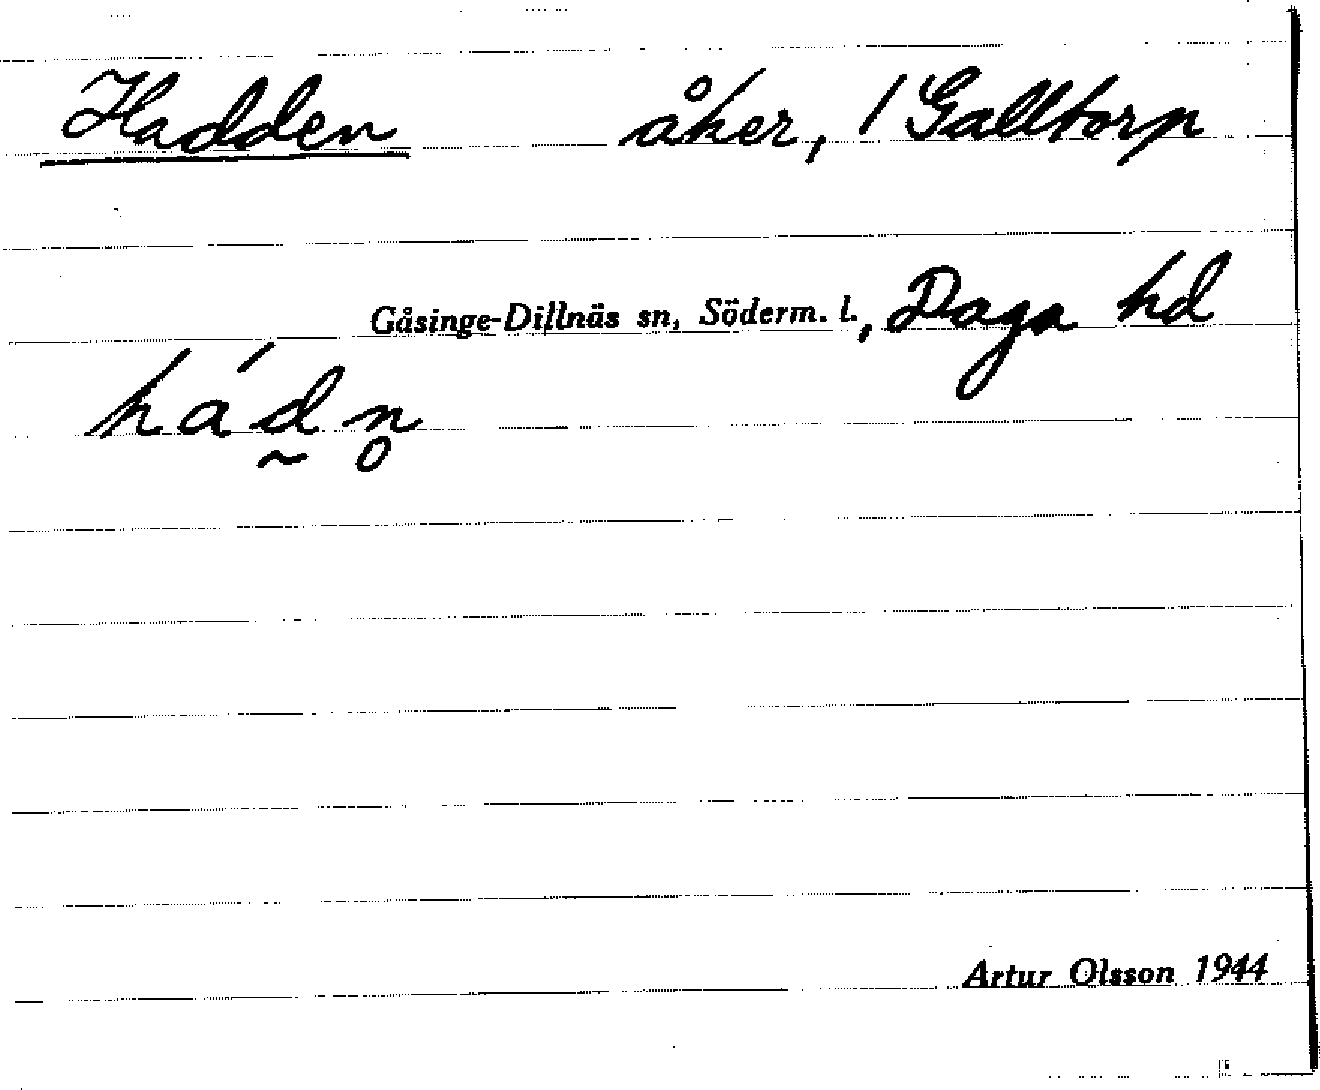 Hadden åker, / Galltorp
Gåsinge-Dillnäs sn, Söderm. l., Daga hd
had̰́n̥
Artur Olsson 1944